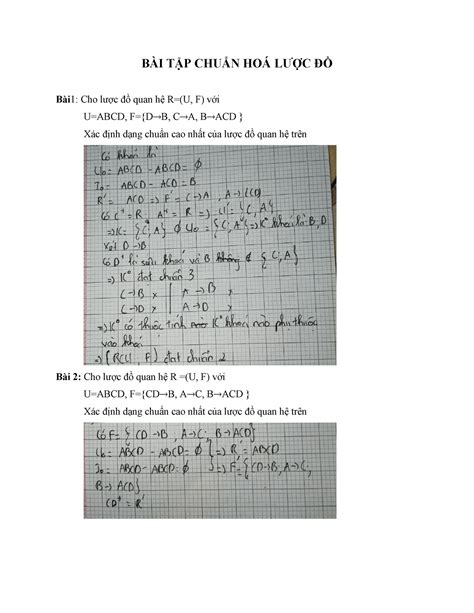 BÀI TẬP CHUẨN HOÁ LƯỢC ĐỒ
Bài1: Cho lược đồ quan hệ R=(U, F) với
U=ABCD, F={D→B, C→A, B→ACD }
Xác định dạng chuẩn cao nhất của lược đồ quan hệ trên
Có khoá là
U₀ = ABCD - ABCD = ∅
I₀ = ABCD - ACD = B
R' = ACD => F' = C→A
Có C⁺ = R, A⁺ = R
với D→B
Có D⁺ là siêu khoá và B ∉ {C, A}
=> K⁰ đạt chuẩn 3
C→B x A→B x
C→D x A→D x
=> K⁰ có thuộc tính K⁰ khoá nào phụ thuộc
vào khoá
=> (R(U, F) đạt chuẩn 2
Bài 2: Cho lược đồ quan hệ R =(U, F) với
U=ABCD, F={CD→B, A→C, B→ACD }
Xác định dạng chuẩn cao nhất của lược đồ quan hệ trên
Có F= {CD→B, A→C; B→ACD}
U₀ = ABCD - ABCD = ∅ => R' = ABCD
I₀ = ABCD - ABCD = ∅ => F' = {CD→B, A→C,
B→ACD}
CD⁺ = R'